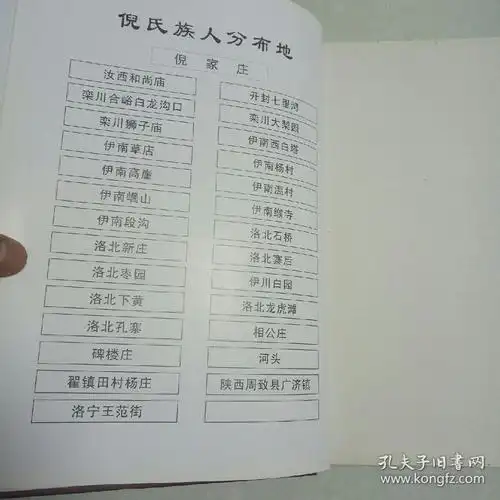 倪氏族人分布地
倪家庄
汝西和尚庙
栾川合峪白龙沟口
栾川狮子庙
伊南草店
伊南高崖
伊南崛山
伊南段沟
洛北新庄
洛北枣园
洛北下黄
洛北孔寨
碑楼庄
翟镇田村杨庄
洛宁王范街
开封七里湾
栾川大梨园
伊南西白塔
伊南杨村
伊南缑寺
洛北石桥
洛北寨后
伊川白园
洛北龙虎滩
相公庄
河头
陕西周致县广济镇
孔夫子旧书网
www.kongfz.com